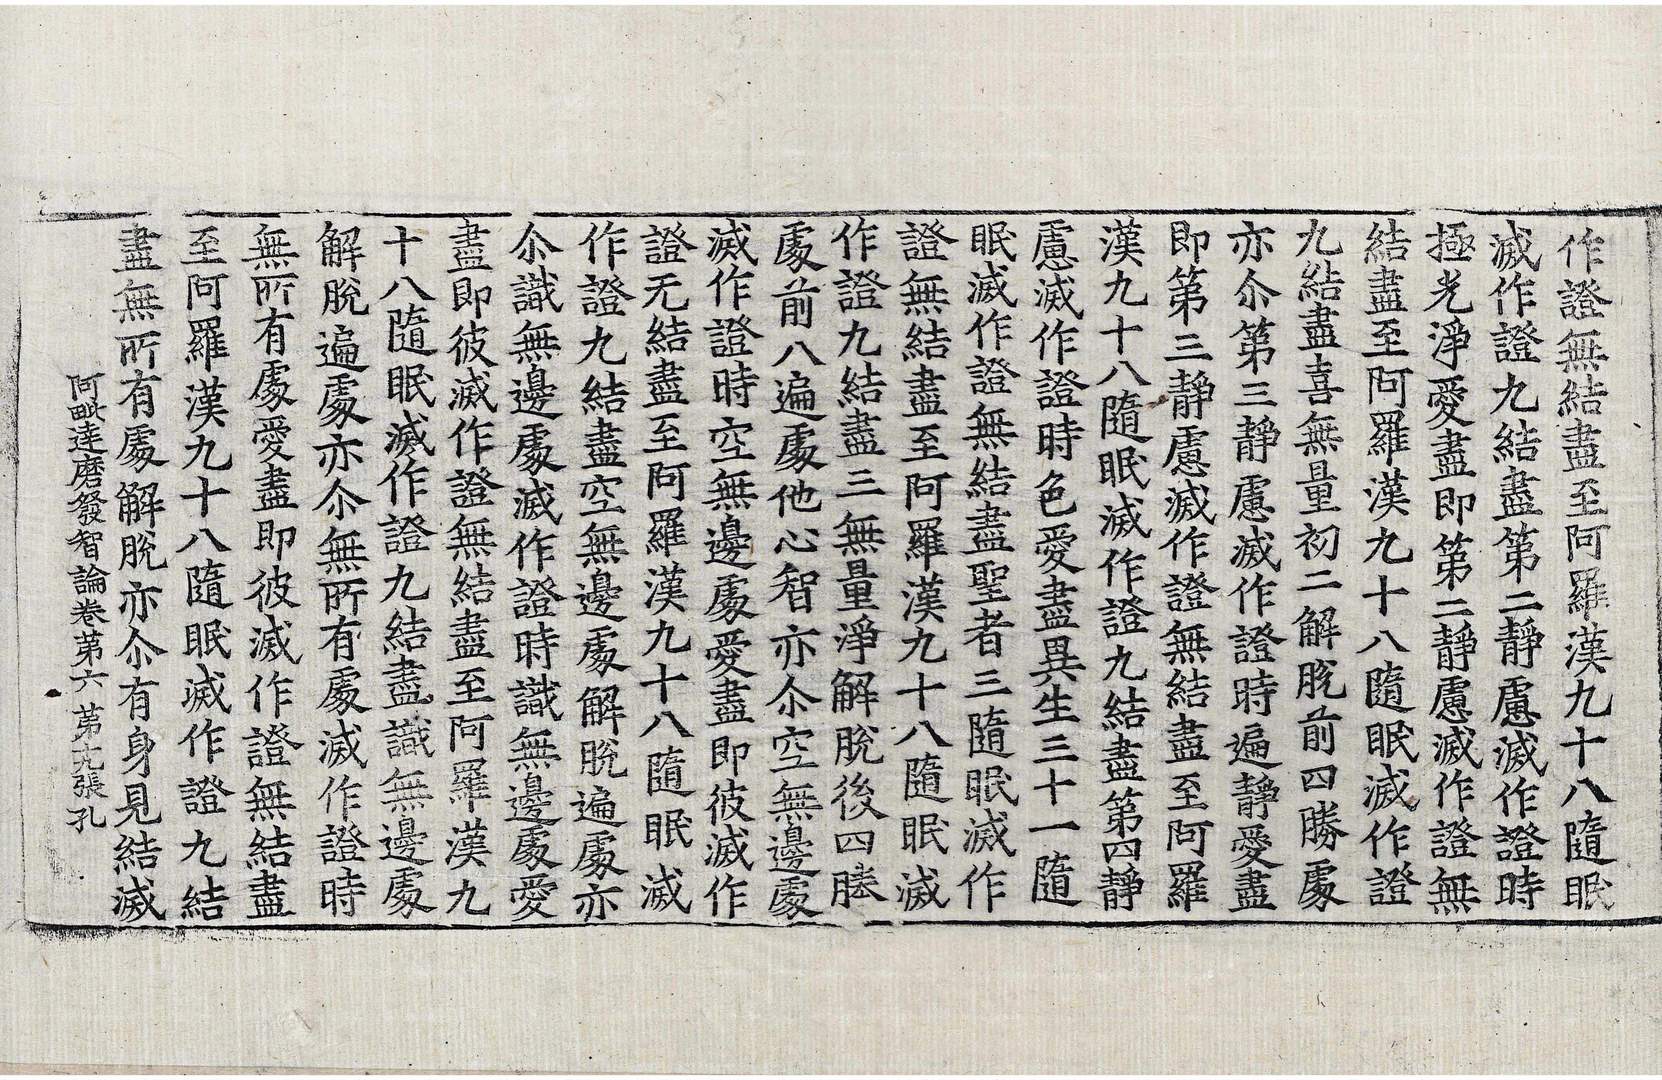 作證無結盡至阿羅漢九十八隨眠
滅作證九結盡第二靜慮滅作證時
極光淨愛盡即第二靜慮滅作證無
結盡至阿羅漢九十八隨眠滅作證
九結盡喜無量初二解脫前四勝處
亦尒第三靜慮滅作證時遍靜愛盡
即第三靜慮滅作證無結盡至阿羅
漢九十八隨眠滅作證九結盡第四靜
慮滅作證時色愛盡異生三十一隨
眠滅作證無結盡聖者三隨眠滅作
證無結盡至阿羅漢九十八隨眠滅
作證九結盡三無量淨解脫後四勝
處前八遍處他心智亦尒空無邊處
滅作證時空無邊處愛盡即彼滅作
證无結盡至阿羅漢九十八隨眠滅
作證九結盡空無邊處解脫遍處亦
尒識無邊處滅作證時識無邊處愛
盡即彼滅作證無結盡至阿羅漢九
十八隨眠滅作證九結盡識無邊處
解脫遍處亦尒無所有處滅作證時
無所有處愛盡即彼滅作證無結盡
至阿羅漢九十八隨眠滅作證九結
盡無所有處解脫亦尒有身見結滅
阿毗達磨發智論卷第六 第十九張 孔